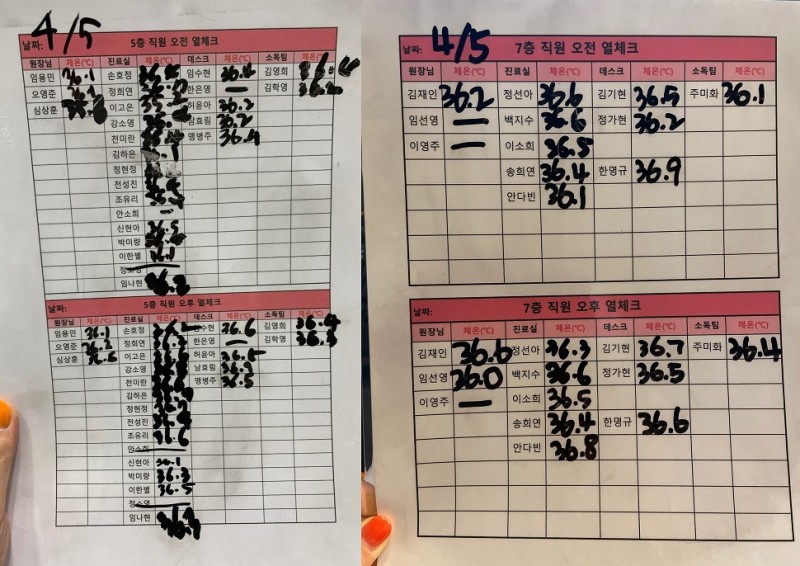 4/5
날짜: 5층 직원 오전 열체크
원장님 체온(℃) 진료실 체온(℃) 데스크 체온(℃) 소독팀 체온(℃)
임용민 36.1 손호정 임수현 36.4 김영희
오영준 36.1 정희연 한은영 — 김학영 36.2
심상훈 이고은 허윤아 36.2
강소영 남효림 36.2
천미란 맹병주 36.4
김하은
정현정
전성진
조유리
안소희 —
신현아 36.5
박미량
이한별 36.1
임나현 36.2
날짜: 5층 직원 오후 열체크
원장님 체온(℃) 진료실 체온(℃) 데스크 체온(℃) 소독팀 체온(℃)
임용민 36.1 손호정 임수현 36.6 김영희 36.4
오영준 36.2 정희연 한은영 — 김학영 36.3
심상훈 36.6 이고은 허윤아 36.6
강소영 남효림
천미란 맹병주 36.5
김하은
정현정
전성진
조유리 36.6
안소희
신현아 36.1
박미량 36.3
이한별 36.5
정소영
임나현 36.3
4/5
날짜: 7층 직원 오전 열체크
원장님 체온(℃) 진료실 체온(℃) 데스크 체온(℃) 소독팀 체온(℃)
김재인 36.2 정선아 36.6 김기현 36.5 주미화 36.1
임선영 — 백지수 36.6 정가현 36.2
이영주 — 이소희 36.5
송희연 36.4 한명규 36.9
안다빈 36.1
날짜: 7층 직원 오후 열체크
원장님 체온(℃) 진료실 체온(℃) 데스크 체온(℃) 소독팀 체온(℃)
김재인 36.6 정선아 36.3 김기현 36.7 주미화 36.4
임선영 36.0 백지수 36.6 정가현 36.5
이영주 — 이소희 36.5
송희연 36.4 한명규 36.6
안다빈 36.8